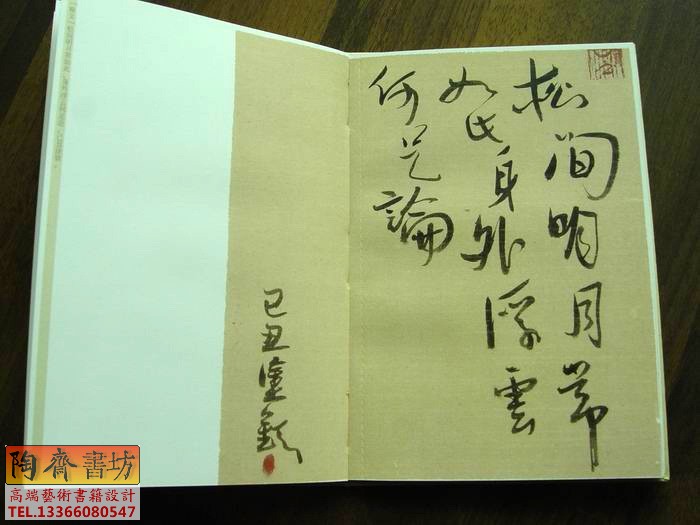 松间明月常
如此身外浮雲
何足論
己丑
陶齋書坊
高端藝術書籍設計
TEL.13366080547